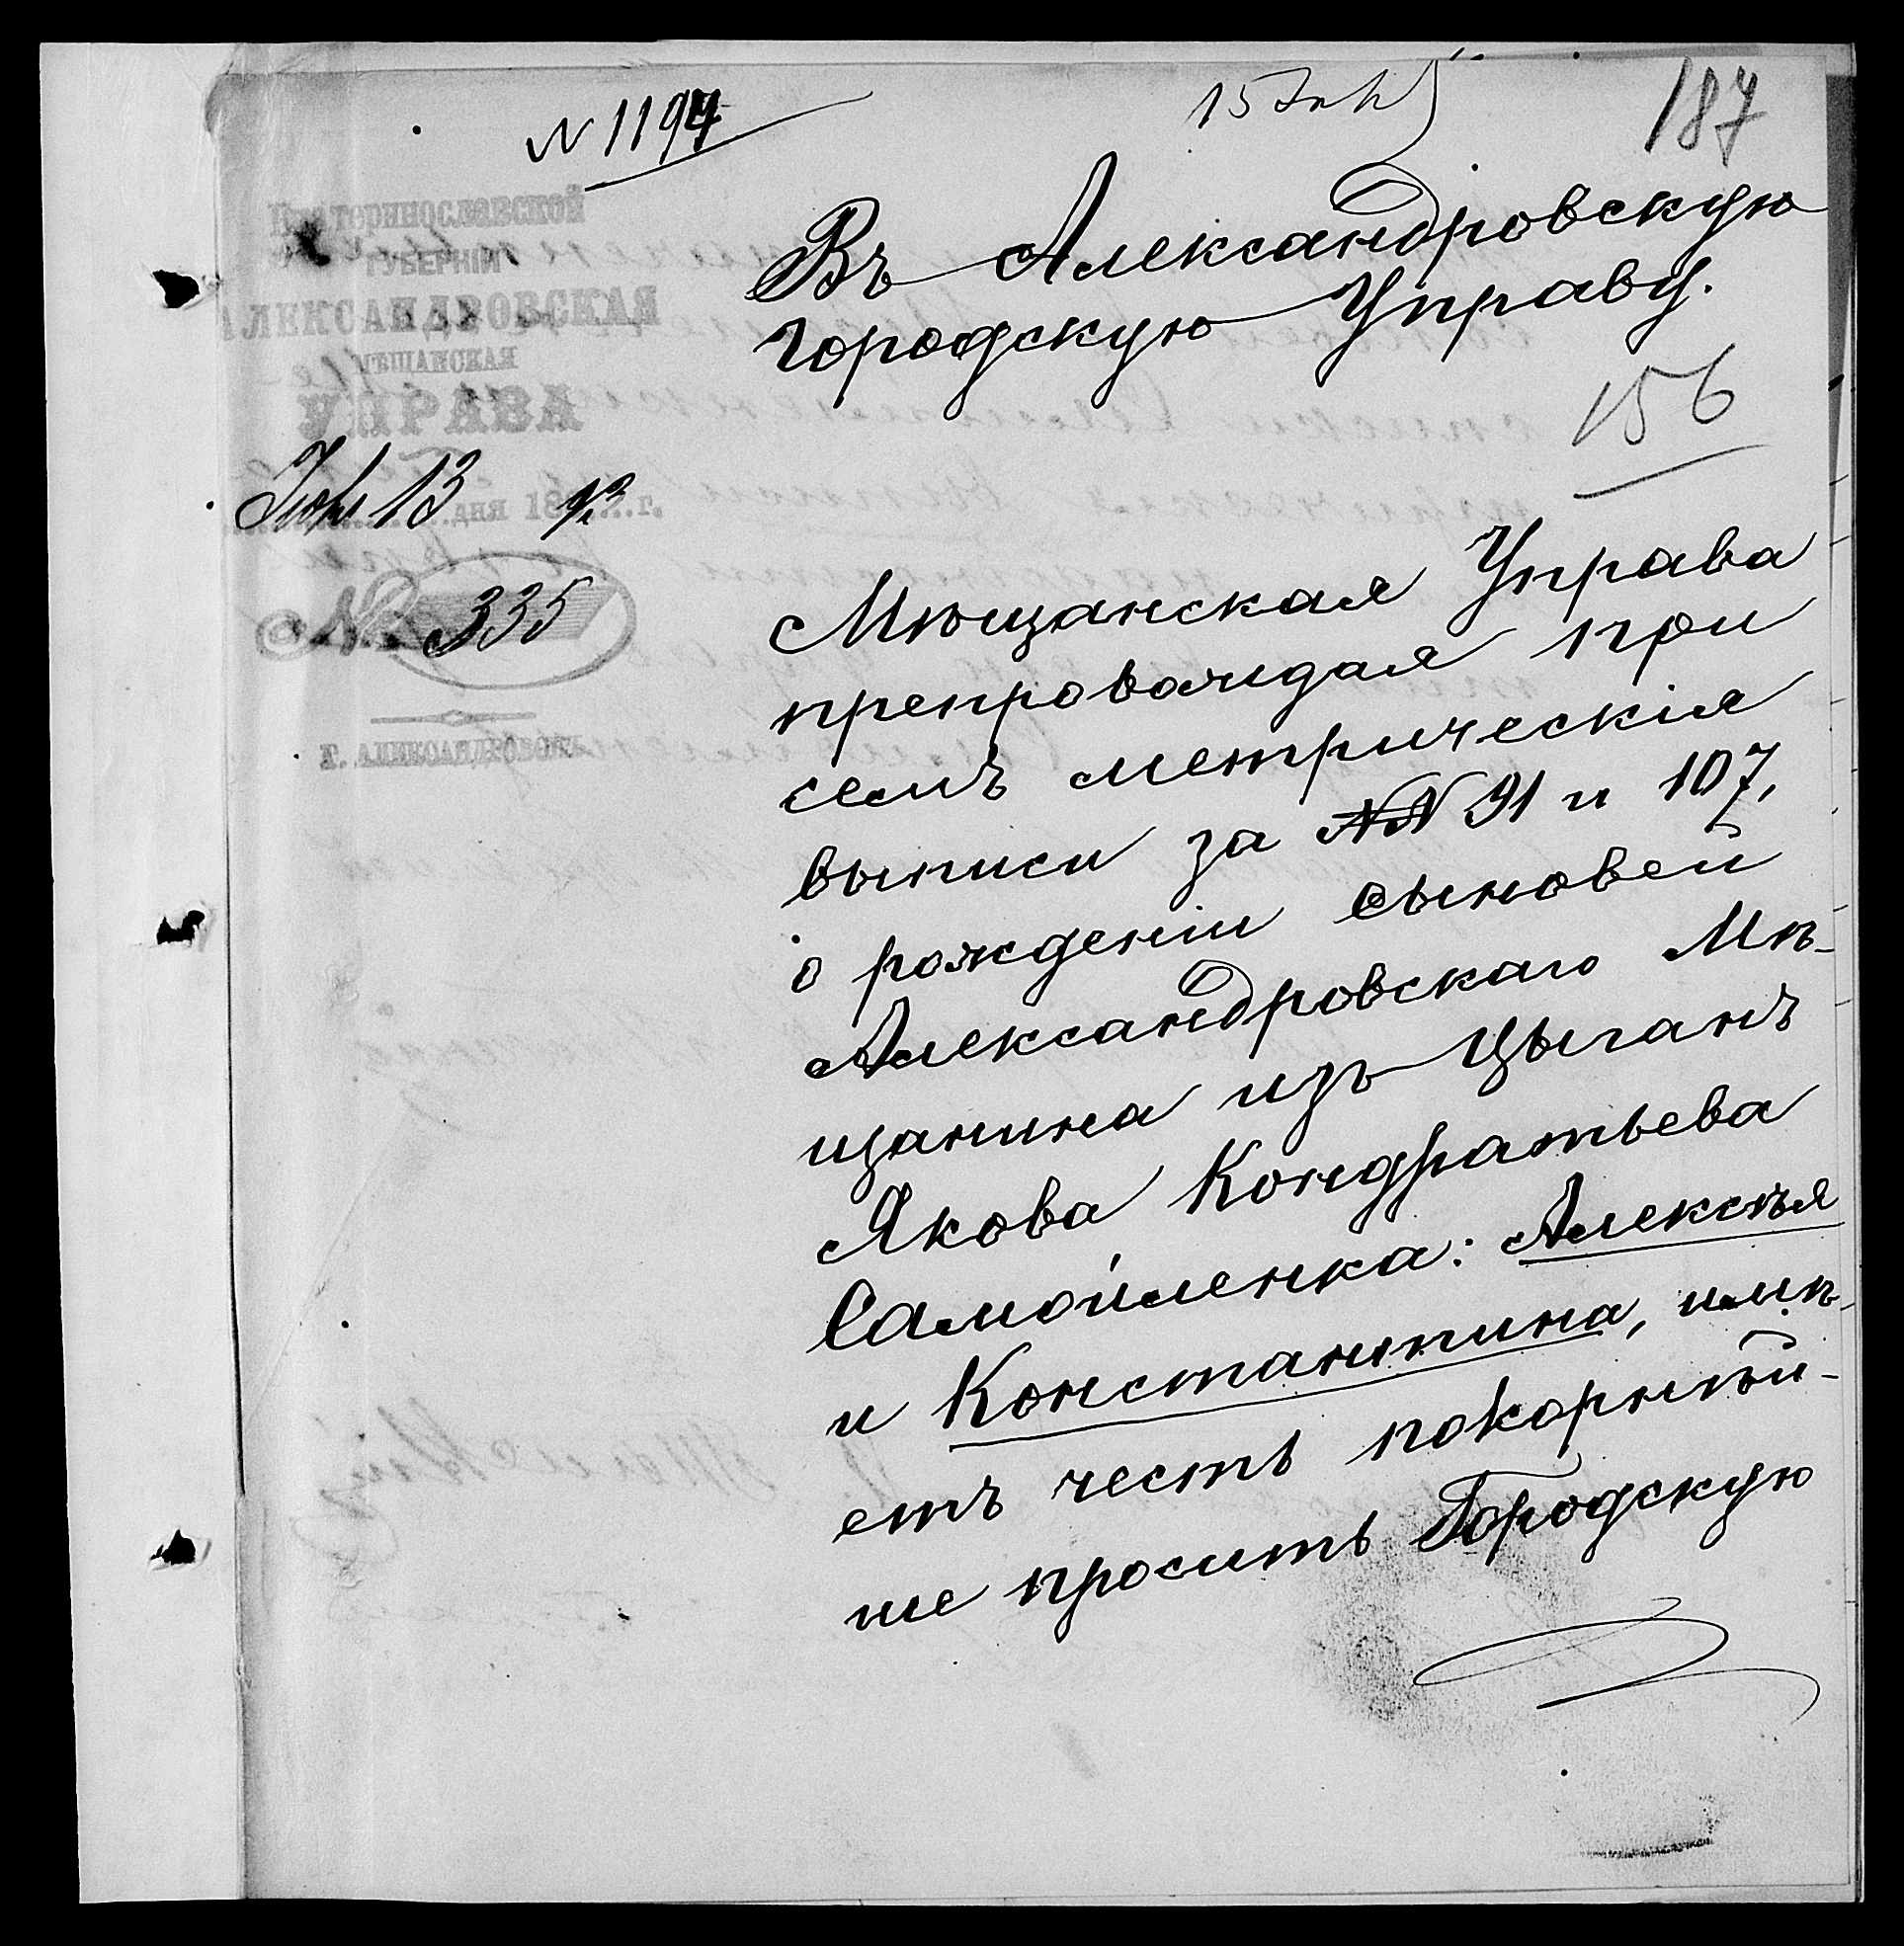 № 1194
187
Екатеринославской
ГУБЕРНІИ
АЛЕКСАНДРОВСКАЯ
МѢЩАНСКАЯ
УПРАВА
13 дня 1893 г.
№ 335
Г. АЛЕКСАНДРОВСКЪ
Въ Александровскую
Городскую Управу.
156
Мѣщанская Управа
препровождая при
семъ метрическія
выписи за №№ 91 и 107,
о рожденіи сыновей
Александровскаго Мѣ-
щанина изъ Цыганъ
Якова Кондратьева
Самойленка: Алексѣя
и Константина, имѣ-
етъ честь покорнѣй-
ше просить Городскую